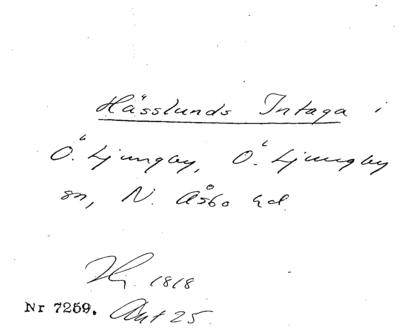 Hässlunds Intaga i
Ö. Ljungby, Ö. Ljungby
sn, N. Åsbo hd.
Hj. 1818
Nr 7259. Akt 25